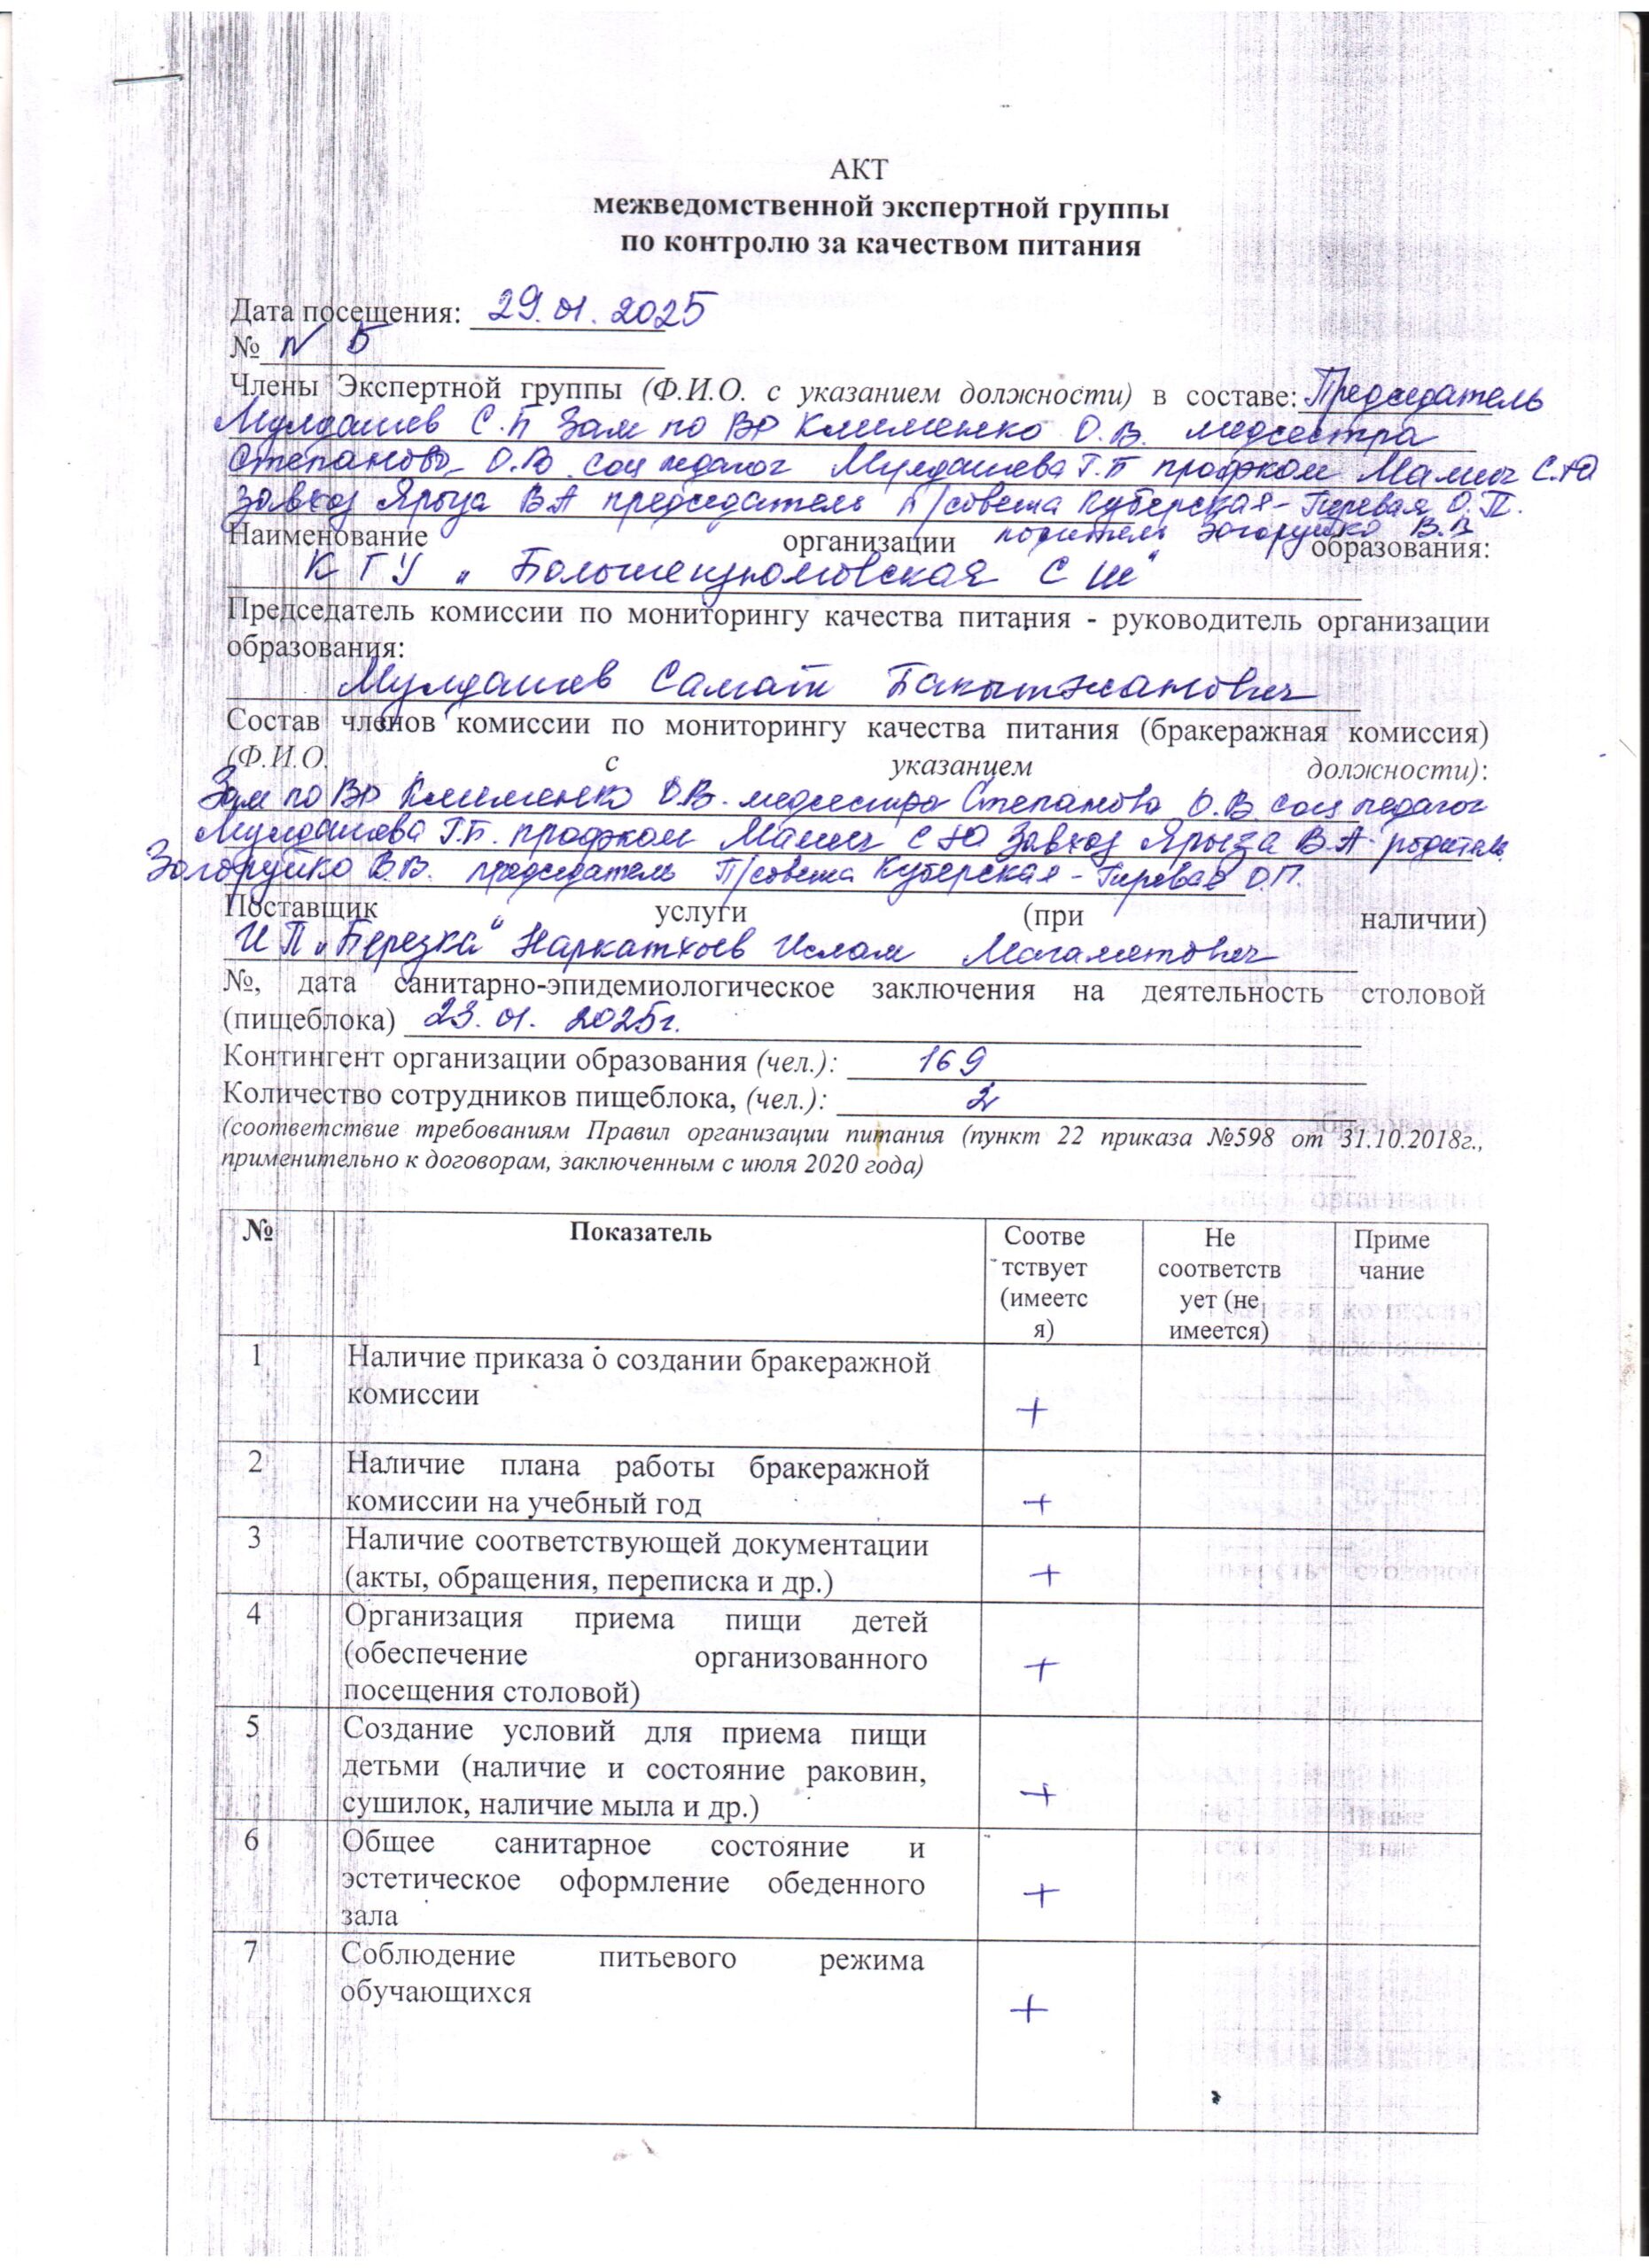 АКТ
межведомственной экспертной группы
по контролю за качеством питания
Дата посещения: 29.01.2025
№ N 5
Члены Экспертной группы (Ф.И.О. с указанием должности) в составе: Председатель
Мулдашев С.Б Зам по ВР Клименко О.В. медсестра
Степанова О.В. соц педагог Мулдашева Г.Б профком Маллич С.Ю
Завхоз Ярыза В А председатель П/совета Куберская-Гиревая О.П.
родитель Загоруйко В.В
Наименование организации образования:
КГУ "Большеизюмовская СШ"
Председатель комиссии по мониторингу качества питания - руководитель организации
образования:
Мулдашев Самат Бакытжанович
Состав членов комиссии по мониторингу качества питания (бракеражная комиссия)
(Ф.И.О. с указанием должности):
Зам по ВР Клименко О.В. медсестра Степанова О.В. соц педагог
Мулдашева Г.Б. профком С Ю Завхоз Ярыза В.А. родитель
Загоруйко В.В. председатель П/совета Куберская - Гиревая О.П.
Поставщик услуги (при наличии)
ИП "Березка" Ислам Магаметович
№, дата санитарно-эпидемиологическое заключения на деятельность столовой
(пищеблока) 23.01. 2025г.
Контингент организации образования (чел.): 169
Количество сотрудников пищеблока, (чел.): 2
(соответствие требованиям Правил организации питания (пункт 22 приказа №598 от 31.10.2018г.,
применительно к договорам, заключенным с июля 2020 года)
№ Показатель Соотве Не Приме
тствует соответств чание
(имеетс ует (не
я) имеется)
1 Наличие приказа о создании бракеражной
комиссии +
2 Наличие плана работы бракеражной
комиссии на учебный год +
3 Наличие соответствующей документации
(акты, обращения, переписка и др.) +
4 Организация приема пищи детей
(обеспечение организованного +
посещения столовой)
5 Создание условий для приема пищи
детьми (наличие и состояние раковин,
сушилок, наличие мыла и др.) +
6 Общее санитарное состояние и
эстетическое оформление обеденного +
зала
7 Соблюдение питьевого режима
обучающихся +